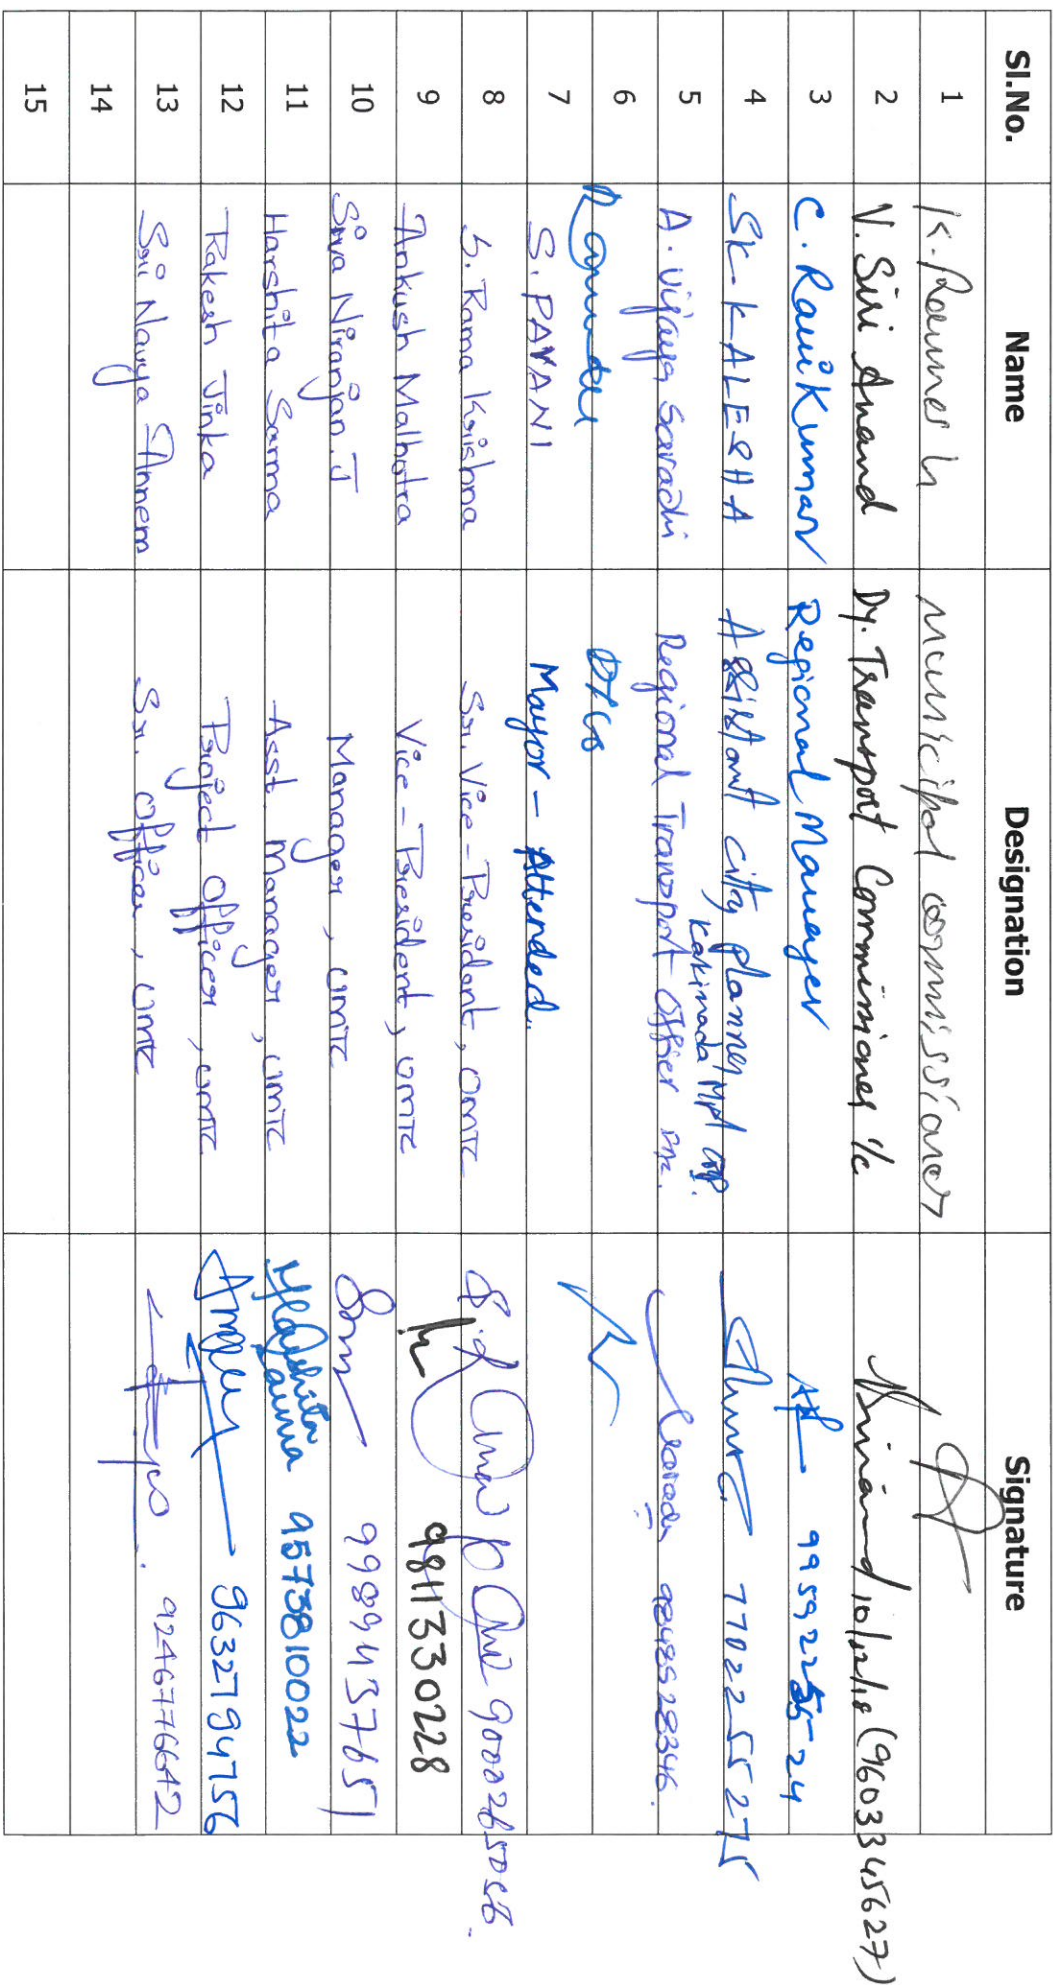 Sl.No. Name Designation Signature
1 K. Ramesh municipal commissioner
2 V. Siri Anand Dy. Transport Commissioner I/c 10/12/18 (9603345627)
3 C. Ravi Kumar Regional Manager 99592255524
4 SK-KALESHA Assistant city planner 7702255275
Kakinada Mpl corp.
5 A. Vijaya Saradhi Regional Transport Officer 9848528346.
6
7 S. PAVANI Mayor - Attended.
8 S. Rama Krishna Sr. Vice-President, UMTC
9 Ankush Malhotra Vice-President, UMTC 9811330228
10 Siva Niranjan. J Manager, UMTC 9989443765
11 Harshita Sarma Asst. Manager, UMTC Harshita Sarma 9573810022
12 Rakesh Jinka Project Officer, UMTC 9632794756
13 Sri Navya Annem Sr. Officer, UMTC 9246776642
14
15